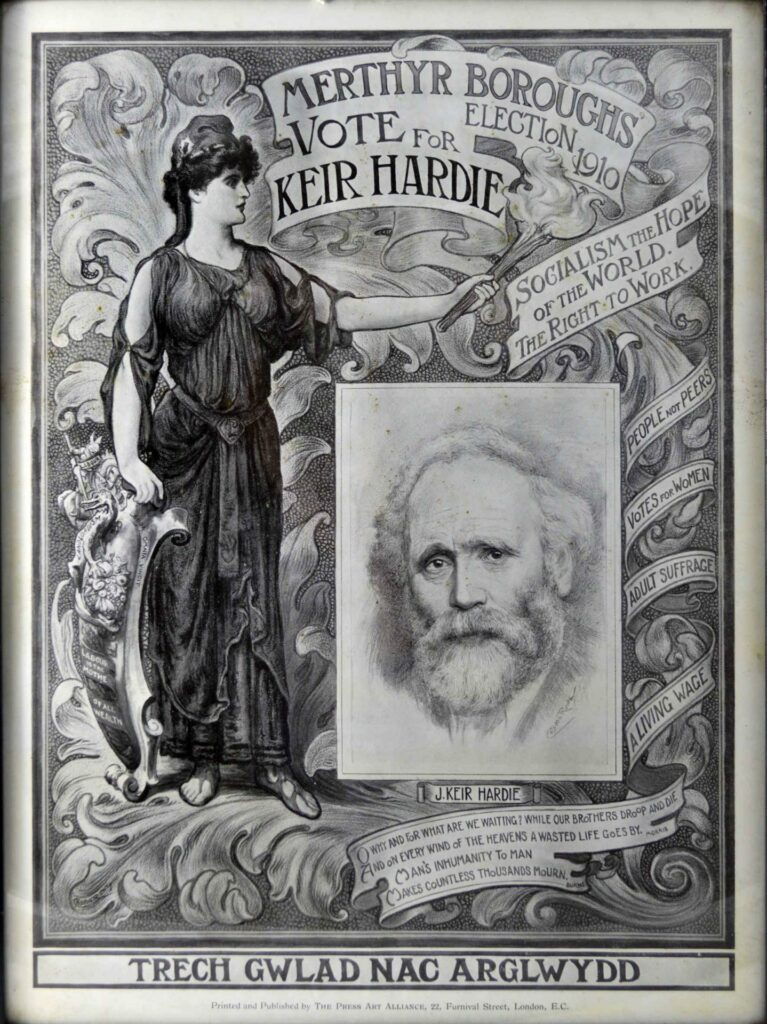 MERTHYR BOROUGHS
ELECTION 1910
VOTE FOR
KEIR HARDIE
SOCIALISM THE HOPE
OF THE WORLD.
THE RIGHT TO WORK.
PEOPLE NOT PEERS
VOTES FOR WOMEN
ADULT SUFFRAGE
A LIVING WAGE
LABOUR
OF ALL
WEALTH
J. KEIR HARDIE
O WHY AND FOR WHAT ARE WE WAITING? WHILE OUR BROTHERS DROOP AND DIE
AND ON EVERY WIND OF THE HEAVENS A WASTED LIFE GOES BY. MORRIS
MAN'S INHUMANITY TO MAN
MAKES COUNTLESS THOUSANDS MOURN. BURNS
TRECH GWLAD NAC ARGLWYDD
Printed and Published by THE PRESS ART ALLIANCE, 22, Furnival Street, London, E.C.